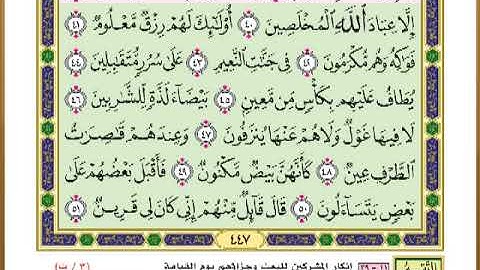 إِلَّا عِبَادَ ٱللَّهِ ٱلْمُخْلَصِينَ ٤٠ أُو۟لَٰٓئِكَ لَهُمْ رِزْقٌ مَّعْلُومٌ ٤١
فَوَٰكِهُ وَهُم مُّكْرَمُونَ ٤٢ فِى جَنَّٰتِ ٱلنَّعِيمِ ٤٣ عَلَىٰ سُرُرٍ مُّتَقَٰبِلِينَ ٤٤
يُطَافُ عَلَيْهِم بِكَأْسٍ مِّن مَّعِينٍۭ ٤٥ بَيْضَآءَ لَذَّةٍ لِّلشَّٰرِبِينَ ٤٦
لَا فِيهَا غَوْلٌ وَلَا هُمْ عَنْهَا يُنزَفُونَ ٤٧ وَعِندَهُمْ قَٰصِرَٰتُ
ٱلطَّرْفِ عِينٌ ٤٨ كَأَنَّهُنَّ بَيْضٌ مَّكْنُونٌ ٤٩ فَأَقْبَلَ بَعْضُهُمْ عَلَىٰ
بَعْضٍ يَتَسَآءَلُونَ ٥٠ قَالَ قَآئِلٌ مِّنْهُمْ إِنِّى كَانَ لِى قَرِينٌ ٥١
٤٤٧
١١ - ٣٩ إنكار المشركين للبعث وجزاؤهم يوم القيامة (٣ / ت)